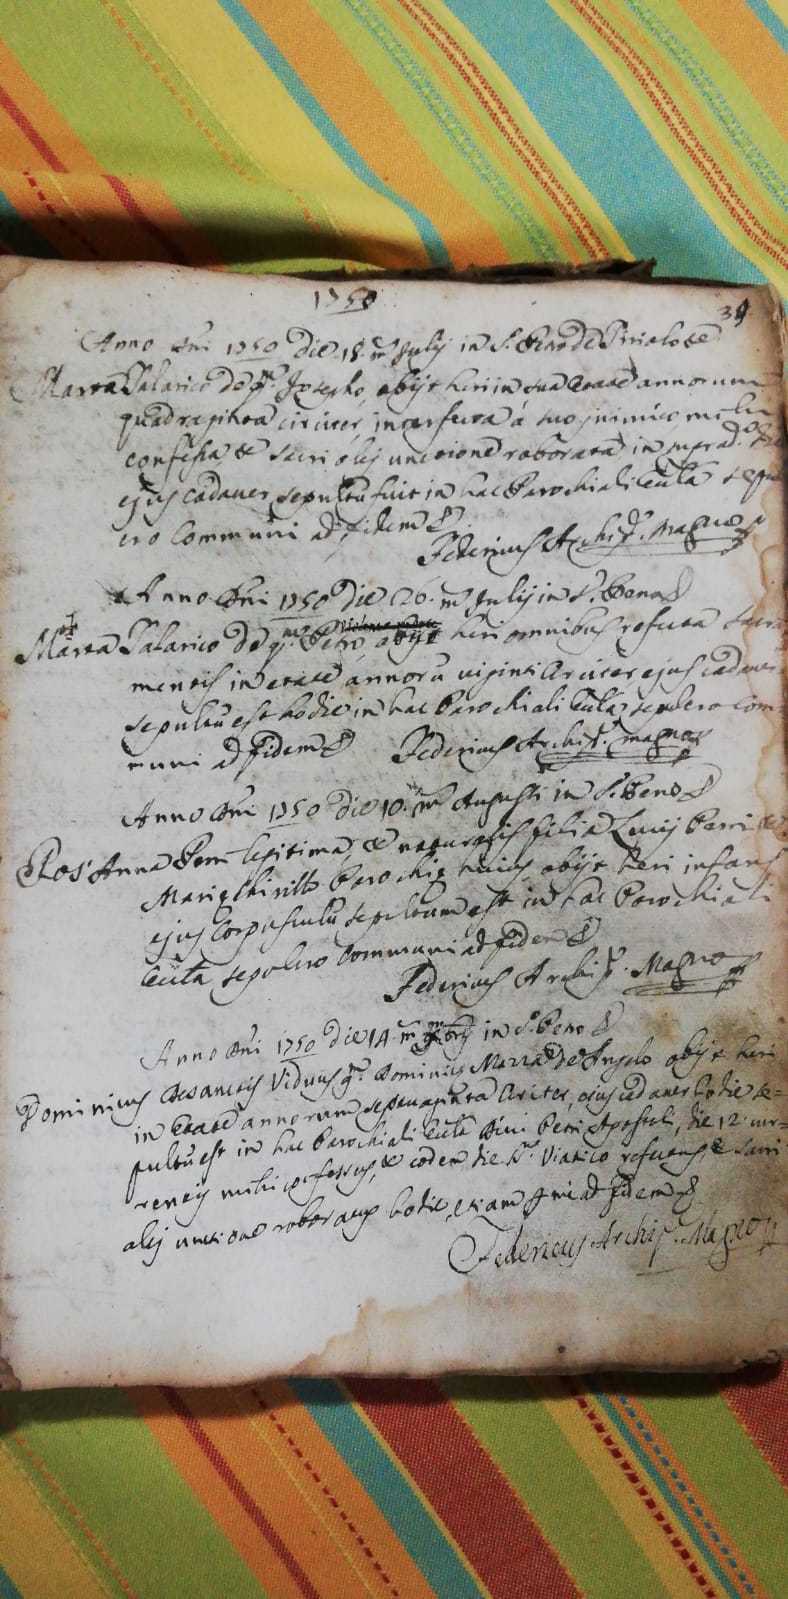 1750
39
Anno Dni 1750 die 18 m Julij in S. Petro de
Marta Talarico de qm Josepho, obijt heri in sua etate annorum
quadraginta circiter, interfecta á suo inimico, mihi
confessa, & sacri olej unctione roborata in
ejus cadaver sepultu fuit in hac Parochiali Eccla
cro communi ad fidem &
Federicus Archip. Magno
Anno Dni 1750 die 26 m Julij in S. Petro &
Marta Talarico de qm Petro, obijt heri omnibus refecta sacra
mentis in etate annoru viginti circiter ejus cadaver
sepultu est hodie in hac Parochiali Eccla, sepulcro com
muni ad fidem & Federicus Archip. Magno
Anno Dni 1750 die 10 m Augusti in S. Petro &
Ros' Anna Perri legitima, & naturalis filia Perri &
Marie Parochie huius obijt heri infans
ejus corpusculu sepultum est in hac Parochiali
Eccla, sepulcro communi ad fidem &
Federicus Archip. Magno
Anno Dni 1750 die 14 m in S. Petro &
Dominicus Desanctis Viduus qm Dominice Mazza de Angelo obijt heri
in etate annorum septuaginta circiter, ejus cadaver hodie se=
pultu est in hac Parochiali Eccla Divi Petri Apostoli, die 12 cur=
rentis mihi confessus, & eodem die Viatico refectus, & sacri
olej unctione roboratus hodie, etiam ad fidem &
Federicus Archip. Magno